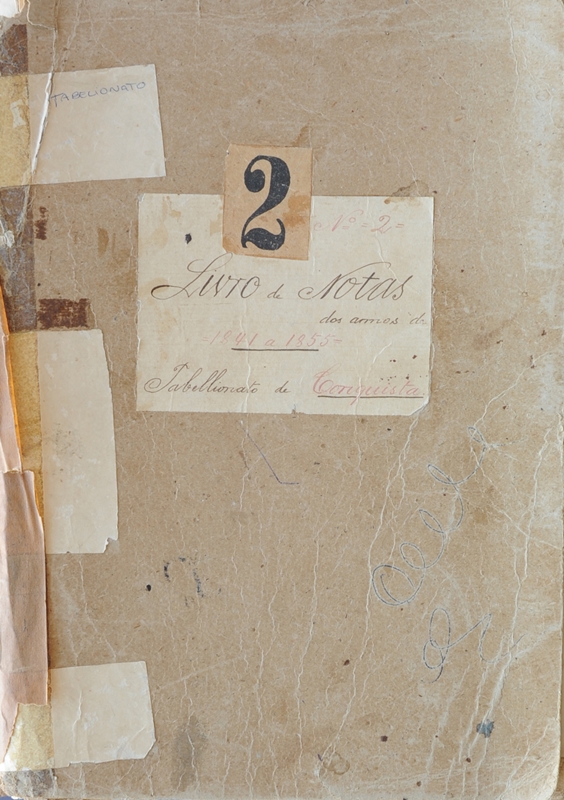 TABELIONATO
2
Nº=2=
Livro de Notas
dos annos de
1841 a 1855=
Tabellionato de Conquista